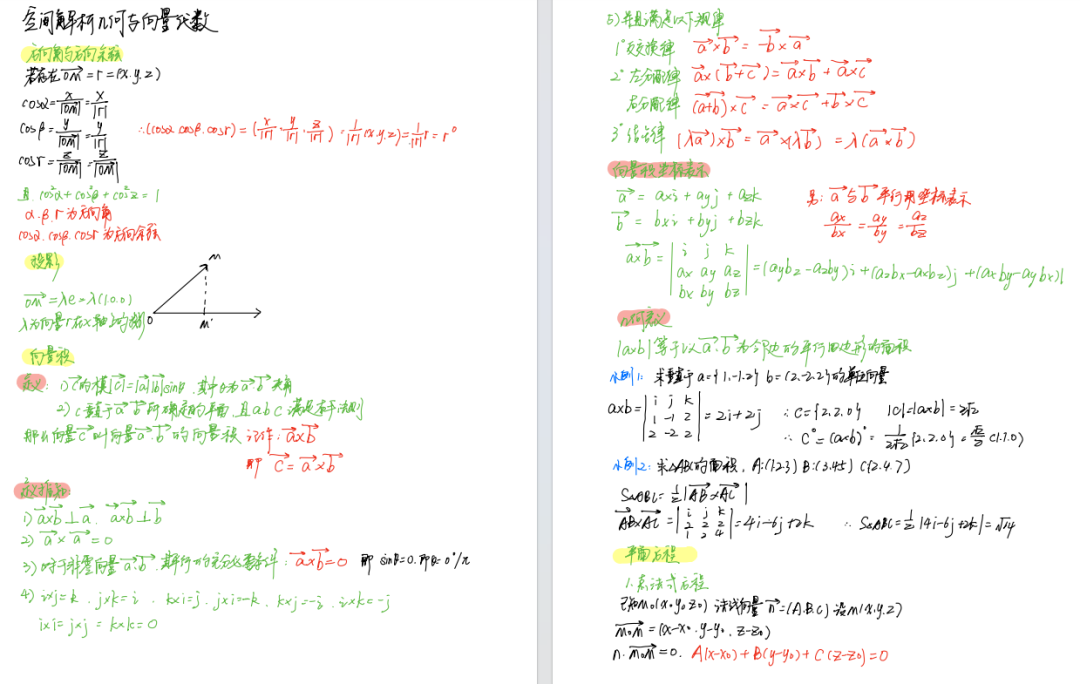 空间解析几何与向量代数
方向角与方向余弦
若存在 OM = r = (x.y.z)
cosα = x/|OM| = x/|r|
cosβ = y/|OM| = y/|r| ∴(cosα.cosβ.cosr) = (x/|r|.y/|r|.z/|r|) = 1/|r|(x.y.z) = 1/|r| r = r°
cosr = z/|OM| = z/|OM|
且 cos²α + cos²β + cos²z = 1
α.β.r 为方向角
cosα.cosβ.cosr 为方向余弦
投影
OM' = λe = λ(1.0.0)
λ为向量r在x轴上的投影
M
O
M'
向量积
定义: 1) c的模|c|=|a||b|sinθ.其中θ为a.b夹角
2) c垂直于a.b所确定的平面 且 a b c 满足右手法则
那么向量c叫向量a.b的向量积 记作: a×b
即 c = a×b
定义推知
1) a×b⊥a. a×b⊥b
2) a×a=0
3) 对于非零向量a.b.其平行的充分必要条件: a×b=0 即 sinθ=0.即θ=0°/π
4) i×j=k. j×k=i. k×i=j. j×i=-k. k×j=-i. i×k=-j
i×i=j×j=k×k=0
5) 并且满足以下规律
1°交换律 a×b = -b×a
2°左分配律 a×(b+c) = a×b + a×c
右分配律 (a+b)×c = a×c + b×c
3°结合律 (λa)×b = a×(λb) = λ(a×b)
向量积坐标表示
a = axi + ayj + azk 另: a与b平行用坐标表示
b = bxi + byj + bzk ax/bx = ay/by = az/bz
a×b = | i j k |
| ax ay az | = (aybz-azby)i + (azbx-axbz)j + (axby-aybx)
| bx by bz |
几何意义
|a×b|等于以a.b为邻边的平行四边形的面积
小例1: 求垂直于 a={1.-1.2} b={2.-2.2}的单位向量
a×b = | i j k |
| 1 -1 2 | = 2i+2j ∴c={2.2.0} |c|=|a×b|=2√2
| 2 -2 2 | ∴c°=(a×b)°=1/2√2{2.2.0}=√2/2(1.1.0)
小例2: 求△ABC的面积. A:(1 2 3) B:(3.4 5) C(2.4.7)
S△ABC = ½|AB×AC|
AB×AC = | i j k |
| 2 2 2 | = 4i-6j+2k ∴S△ABC=½|4i-6j+2k|=√14
| 1 2 4 |
平面方程
1.点法式方程
已知M₀(x₀.y₀.z₀) 法线向量n=(A.B.C) 设M(x.y.z)
M₀M = (x-x₀.y-y₀.z-z₀)
n.M₀M=0. A(x-x₀)+B(y-y₀)+C(z-z₀)=0